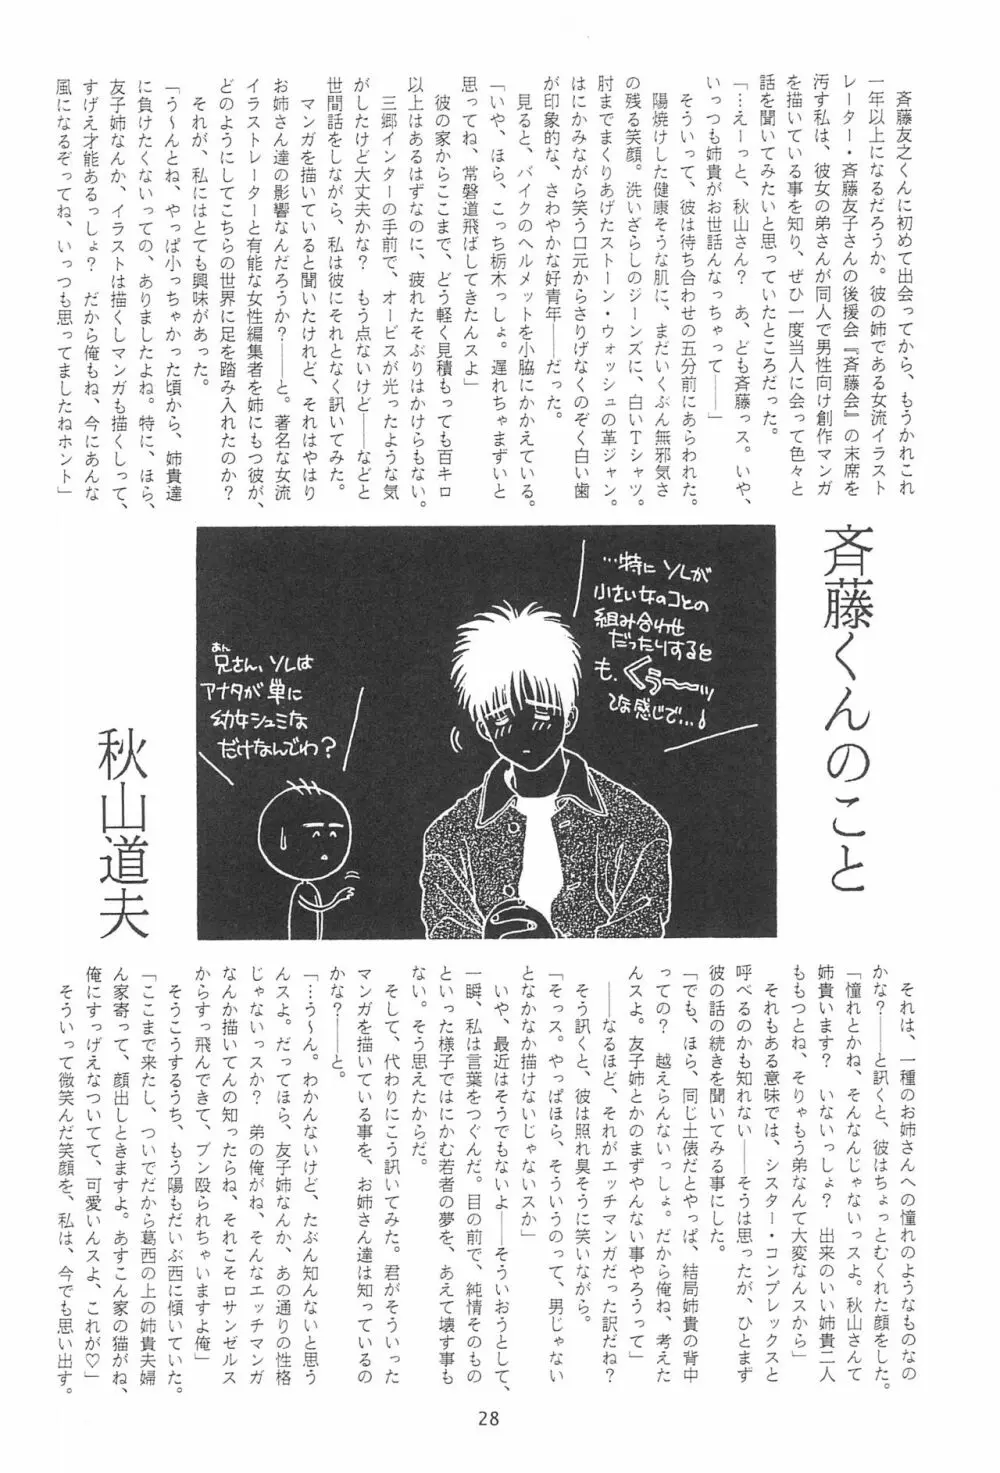 斉藤くんのこと
秋山道夫
斉藤友之くんに初めて出会ってから、もうかれこれ
一年以上になるだろうか。彼の姉である女流イラスト
レーター・斉藤友子さんの後援会『斉藤会』の末席を
汚す私は、彼女の弟さんが同人で男性向け創作マンガ
を描いている事を知り、ぜひ一度当人に会って色々と
話を聞いてみたいと思っていたところだった。
「…えーっと、秋山さん？　あ、ども斉藤っス。いや、
いっつも姉貴がお世話んなっちゃって――」
そういって、彼は待ち合わせの五分前にあらわれた。
陽焼けした健康そうな肌に、まだいくぶん無邪気さ
の残る笑顔。洗いざらしのジーンズに、白いTシャツ。
肘までまくりあげたストーン・ウォッシュの革ジャン。
はにかみながら笑う口元からさりげなくのぞく白い歯
が印象的な、さわやかな好青年――だった。
見ると、バイクのヘルメットを小脇にかかえている。
「いや、ほら、こっち栃木っしょ。遅れちゃまずいと
思ってね、常磐道飛ばしてきたんスよ」
彼の家からここまで、どう軽く見積もっても百キロ
以上はあるはずなのに、疲れたそぶりはかけらもない。
三郷インターの手前で、オービスが光ったような気
がしたけど大丈夫かな？　もう点ないけど――などと
世間話をしながら、私は彼にそれとなく訊いてみた。
マンガを描いていると聞いたけれど、それはやはり
お姉さん達の影響なんだろうか？――と。著名な女流
イラストレーターと有能な女性編集者を姉にもつ彼が、
どのようにしてこちらの世界に足を踏み入れたのか？
それが、私にはとても興味があった。
「う～んとね、やっぱ小っちゃかった頃から、姉貴達
に負けたくないっての、ありましたよね。特に、ほら、
友子姉なんか、イラストは描くしマンガも描くしって、
すげえ才能あるっしょ？　だから俺もね、今にあんな
風になるぞってね、いっつも思ってましたねホント」
…特にソレが
小さい女のコとの
組み合わせ
だったりすると
も、くぅ～～ッ
てな感じで…♪
あん
兄さん、ソレは
アナタが単に
幼女シュミな
だけなんでわ？
それは、一種のお姉さんへの憧れのようなものなの
かな？――と訊くと、彼はちょっとむくれた顔をした。
「憧れとかね、そんなんじゃないっスよ。秋山さんて
姉貴います？　いないっしょ？　出来のいい姉貴二人
ももつとね、そりゃもう弟なんて大変なんスから」
それもある意味では、シスター・コンプレックスと
呼べるのかも知れない――そうは思ったが、ひとまず
彼の話の続きを聞いてみる事にした。
「でも、ほら、同じ土俵だとやっぱ、結局姉貴の背中
ってての？　越えらんないっしょ。だから俺ね、考えた
んスよ。友子姉とかのまずやんない事やろうって」
――なるほど、それがエッチマンガだった訳だね？
そう訊くと、彼は照れ臭そうに笑いながら。
「そっス。やっぱほら、そういうのって、男じゃない
となかなか描けないじゃないスか」
いや、最近はそうでもないよ――そういおうとして、
一瞬、私は言葉をつぐんだ。目の前で、純情そのもの
といった様子ではにかむ若者の夢を、あえて壊す事も
ない。そう思えたからだ。
そして、代わりにこう訊いてみた。君がそういった
マンガを描いている事を、お姉さん達は知っているの
かな？――と。
「…う～ん。わかんないけど、たぶん知んないと思う
んスよ。だってほら、友子姉なんか、あの通りの性格
じゃないっスか？　弟の俺がね、そんなエッチマンガ
なんか描いてんの知ったらね、それこそロサンゼルス
からすっ飛んできて、ブン殴られちゃいますよ俺」
そうこうするうち、もう陽もだいぶ西に傾いていた。
「ここまで来たし、ついでだから葛西の上の姉貴夫婦
ん家寄って、顔出しときますよ。あすこん家の猫がね、
俺にすっげえなついてて、可愛いんスよ、これが♡」
そういって微笑んだ笑顔を、私は、今でも思い出す。
28